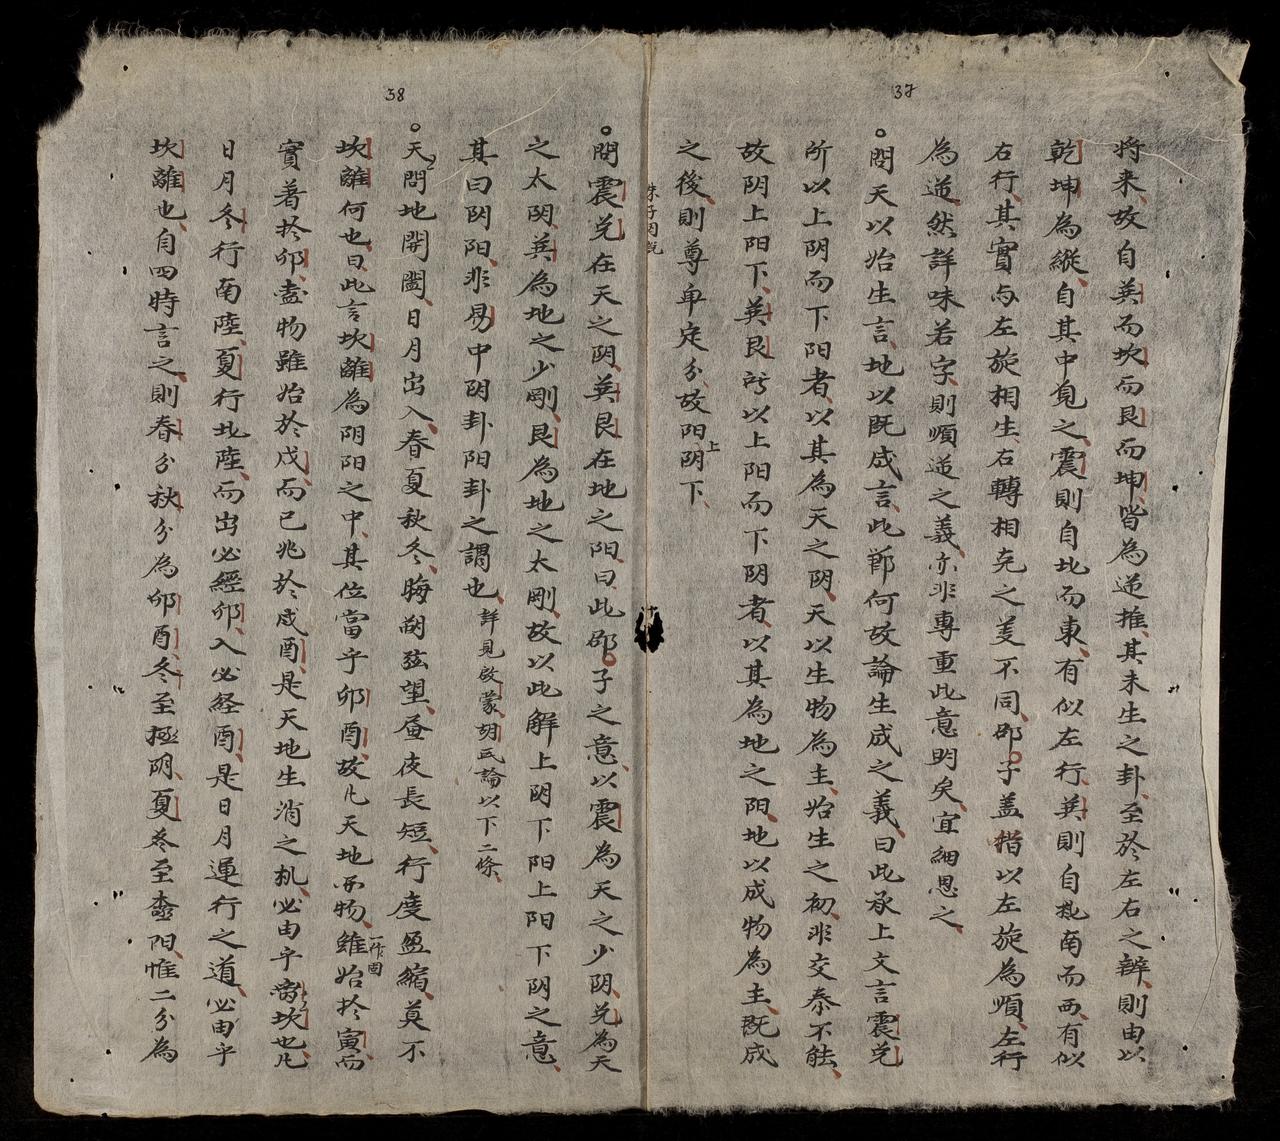 37
將来故自巽而坎而艮而坤皆為逆推其未生之卦至於左右之辨則由以
乾坤為縱自其中覓之震則自北而東有似左行巽則自南而西有似
右行其實与左旋相生右轉相克之義不同邵子盖猶以左旋為順左行
為逆然詳味若字則順逆之義亦非專重此意明矣宜細思之
○問天以始生言地以既成言此節何故論生成之義曰此承上文言震兌
所以上阴而下阳者以其為天之阴天以生物為主始生之初非交泰不能
故阴上阳下巽艮所以上阳而下阴者以其為地之阳地以成物為主既成
之後則尊卑定分故阳上阴下
38
○問震兌在天之阴巽艮在地之阳曰此邵子之意以震為天之少阴兌為天
之太阴巽為地之少剛艮為地之太剛故以此解上阴下阳上阳下阴之意
其曰阴阳非易中阴卦阳卦之謂也詳見啟蒙胡氏論以下二條
○問天地開闔日月出入春夏秋冬晦朔弦望昼夜長短行度盈縮莫不
坎離何也曰此言坎離為阴阳之中其位當乎卯酉故凡天地万物雖一作固始於寅而
實著於卯盡物雖始於戌而已兆於酉是天地生消之机必由乎坎也凡
日月冬行南陸夏行北陸而出必經卯入必経酉是日月運行之道必由乎
坎離也自四時言之則春分秋分為卯酉冬至極阴夏至極阳惟二分為